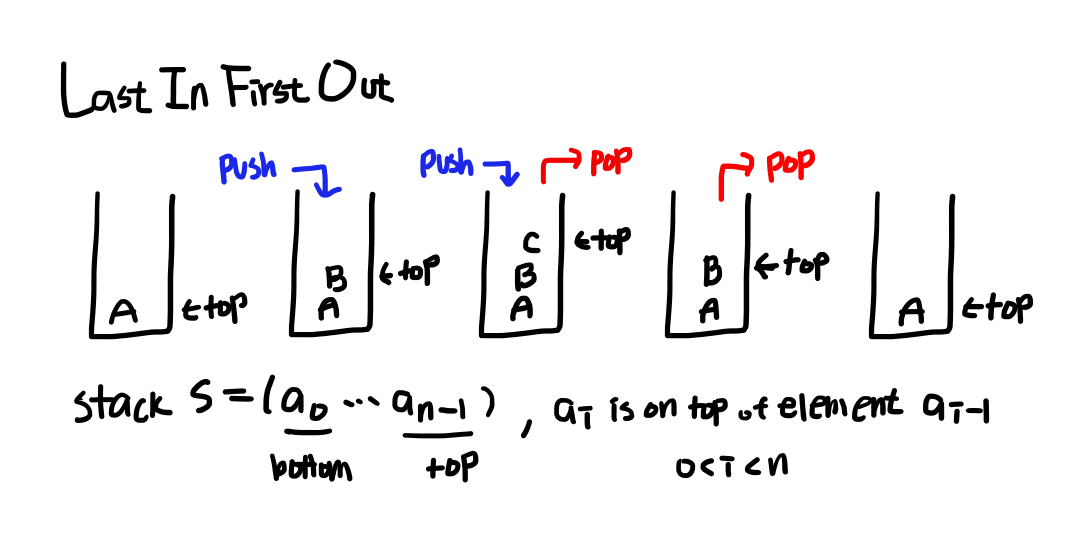 Last In First Out
push push pop pop
C ←top
B ←top B B ←top
A ←top A A A A ←top
stack S = (a₀ ... aₙ₋₁) , aᵢ is on top of element aᵢ₋₁
bottom top 0<i<n